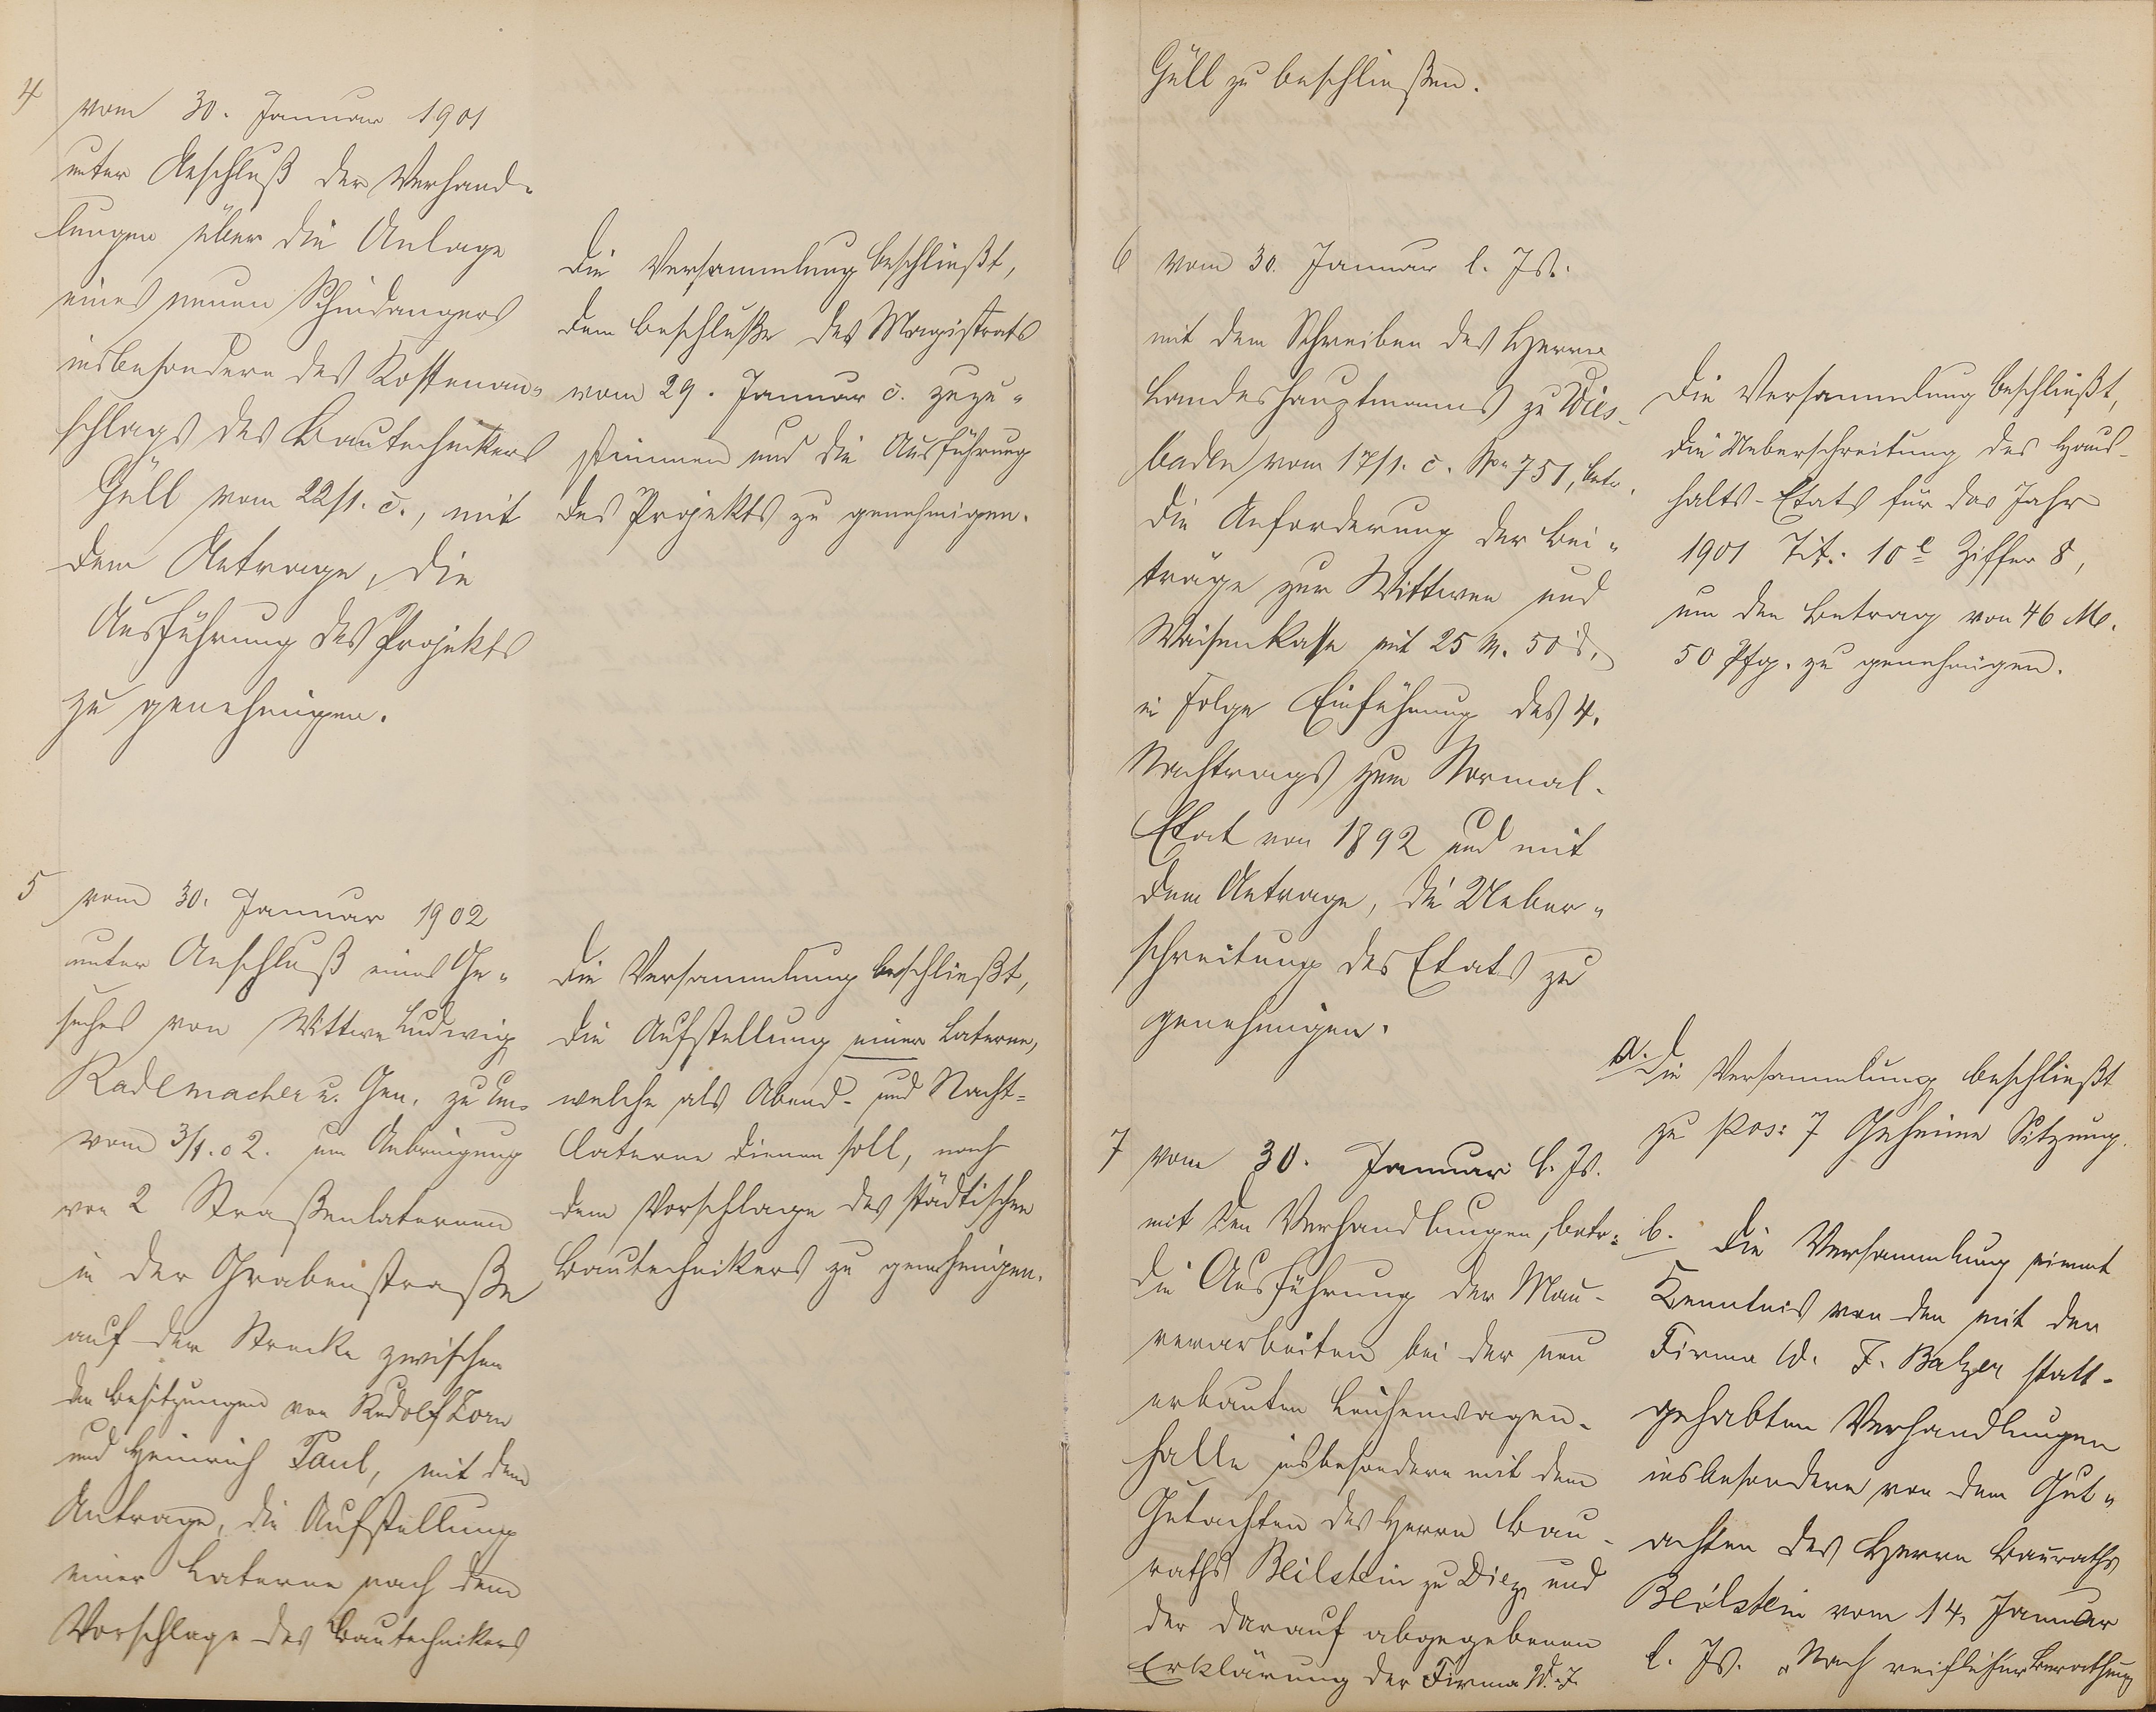 4
vom 30. Januar 1901
unter Anschluß der Verhand-
lungen über die Anlage
eines neuen Schindangers
insbesondere des Kostenan-
schlags des Bautechnikers
Güll vom 22/1. c., mit
dem Antrage, die
Ausführung des Projekts
zu genehmigen.
Die Versammlung beschließt,
dem Beschluße des Magistrats
vom 29. Januar c. zuzu-
stimmen und die Ausführung
des Projekts zu genehmigen.
5
vom 30. Januar 1902
unter Anschluß eines Ge-
suches von Wittwe Ludwig
Rademacher u. Gen. zu
vom 3/1. 02. um Anbringung
von 2 Straßenlaternen
in der Grabenstraße
auf der Strecke zwischen
den Besitzungen von Rudolf Korn
und Heinrich Paul, mit dem
Antrage, die Aufstellung
einer Laterne nach dem
Vorschlage des Bautechnikers
Die Versammlung beschließt,
die Aufstellung einer Laterne,
welche als Abend- und Nacht-
laterne dienen soll, nach
dem Vorschlage des städtischen
Bautechnikers zu genehmigen.
Güll zu beschließen.
6
vom 30. Januar l. Js.
mit dem Schreiben des Herrn
Landeshauptmanns zu Wies-
baden vom 17/1. c. No 751, betr.
die Anforderung der Bei-
träge zur Wittwen und
Waisenkasse mit 25 M. 50 d.
in Folge Einführung des 4.
Nachtrags zum Normal-
Etat von 1892 und mit
dem Antrage, die Ueber-
schreitung des Etats zu
genehmigen.
Die Versammlung beschließt,
die Ueberschreitung des Haus-
halts-Etats für das Jahr
1901 Tit. 10 e Ziffer 8,
um den Betrag von 46 M.
50 Pfg. zu genehmigen.
7
vom 30. Januar l. Js.
mit den Verhandlungen, betr.
die Ausführung der Mau-
rerarbeiten bei der neu
erbauten Leichenwagen-
halle insbesondere mit dem
Gutachten des Herrn Bau-
raths Beilstein zu Diez und
der darauf abgegebenen
Erklärung der Firma W. F.
a. Die Versammlung beschließt
zu Pos: 7 Geheime Sitzung.
b. Die Versammlung nimmt
Kenntnis von den mit der
Firma W. F. Balzer statt-
gehabten Verhandlungen
insbesondere von dem Gut-
achten des Herrn Bauraths
Beilstein vom 14. Januar
l. Js. Nach reiflicher Berathung